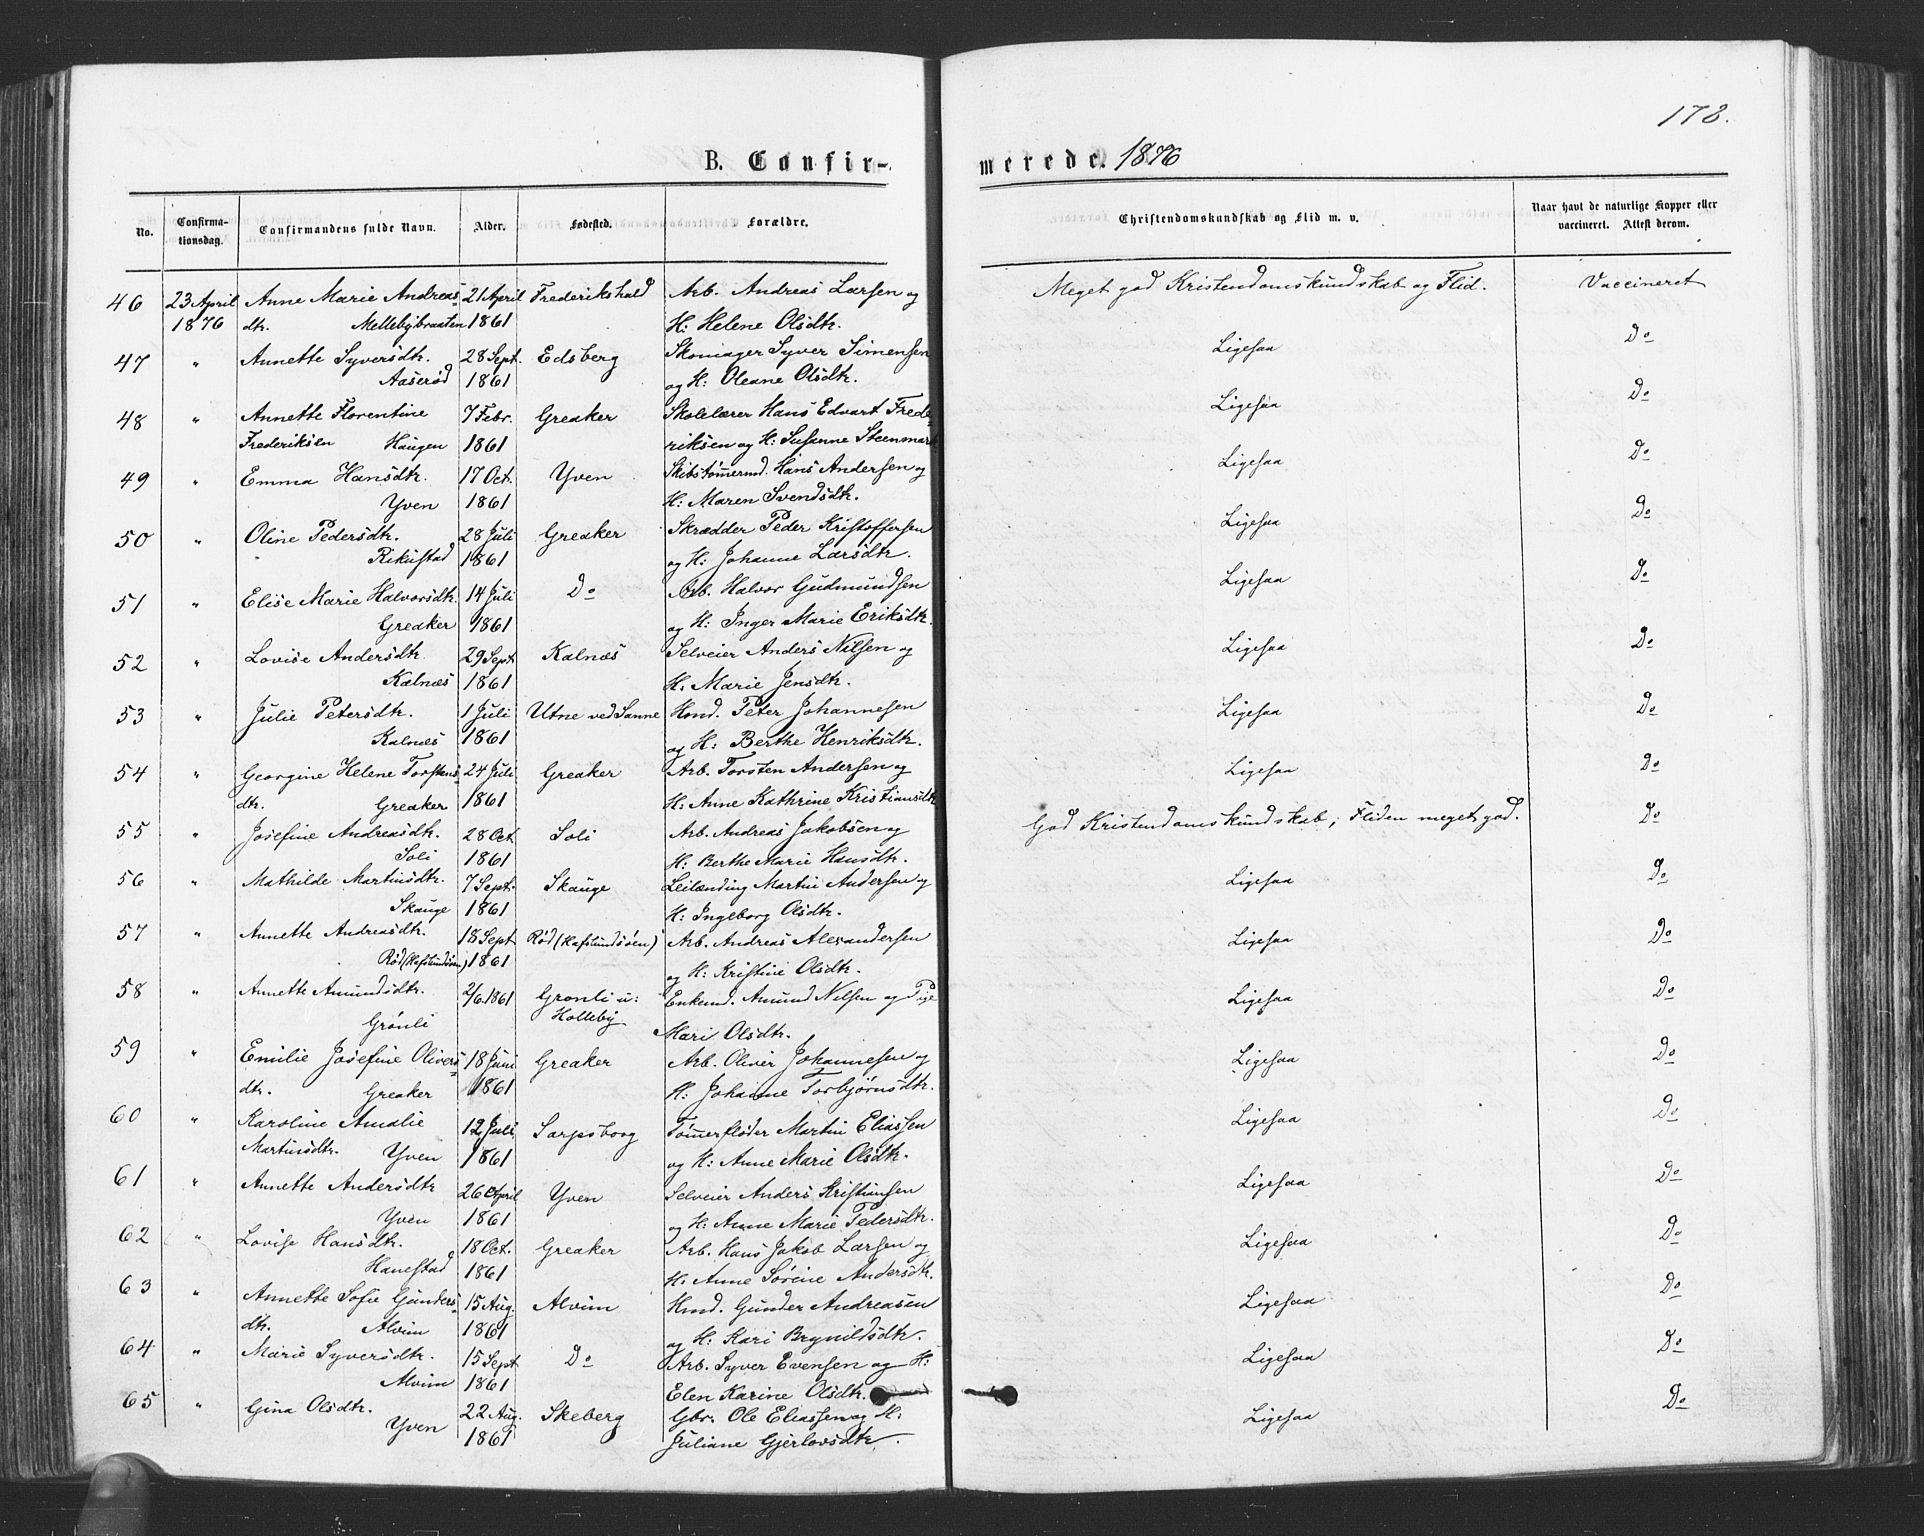 178.
B. Confir-
merede. 1876
No.
Confirma-
tionsdag.
Confirmandens fulde Navn.
Alder.
Fødested.
Forældre.
Christendomskundskab og Flid m. v.
Naar havt de naturlige Kopper eller
vaccineret. Attest derom.
46 23 April Anne Marie Andreas- 21 April Frederikshald Arb. Andreas Larsen og Meget god Kristendomskundskab og Flid. Vaccineret
1876 dtr. Mellebybraaten 1861 H: Helene Olsdtr.
47 " Annette Syversdtr. 28 Sept. Edsberg Skomager Syver Simensen Ligesaa Do
Aaserød 1861 og H: Oleane Olsdtr.
48 " Annette Florentine 7 Febr. Greaker Skolelærer Hans Edvart Frede- Ligesaa Do
Frederiksen Haugen 1861 riksen og H: Susanne Steenmark
49 " Emma Hansdtr. 17 Oct. Yven Skibstømermd. Hans Andersen og Ligesaa Do
Yven 1861 H: Maren Svendsdtr.
50 " Oline Pedersdtr. 28 Juli Greaker Skrædder Peder Kristoffersen Ligesaa Do
Rikustad 1861 og H: Johanne Larsdtr.
51 " Elise Marie Halvorsdtr. 14 Juli Do Arb. Halvor Gudmundsen Ligesaa Do
Greaker 1861 og H: Inger Marie Eriksdtr.
52 " Lovise Andersdtr. 29 Sept. Kalnæs Selveier Anders Nilsen og Ligesaa Do
Kalnæs 1861 H. Marie Jensdtr.
53 " Julie Petersdtr. 1 Juli Utne ved Sanne Hmd. Peter Johannesen Ligesaa Do
Kalnæs 1861 og H: Berthe Henriksdtr.
54 " Georgine Helene Torstens- 24 Juli Greaker Arb. Torsten Andersen og Ligesaa Do
dtr. Greaker 1861 H: Anne Kathrine Kristiansdtr
55 " Josefine Andreasdtr. 28 Oct Soli Arb. Andreas Jakobsen og God Kristendomskundskab; Fliden meget god. Do
Soli 1861 H: Berthe Marie Hansdtr.
56 " Mathilde Martinsdtr. 7 Sept. Skauge Leilænding Martin Andersen og Ligesaa Do
Skauge 1861 H: Ingeborg Olsdtr.
57 " Annette Andreasdtr. 18 Sept Rød (Hafslundsøen) Arb. Andreas Alexandersen Ligesaa Do
Rød (Hafslundsøen) 1861 og H: Kristine Olsdtr.
58 " Annette Amundsdtr. 2/6.1861 Grønli u: Enkemd. Amund Nilsen og Pige Ligesaa Do
Grønli Holleby Mari Olsdtr.
59 " Emilie Josefine Olivers- 18 Juni Greaker Arb. Oliver Johannesen og Ligesaa Do
dtr. Greaker 1861 H: Johanne Torbjørnsdtr.
60 " Karoline Amalie 12 Juli Sarpsborg Tømerfløder Martin Eliassen Ligesaa Do
Martinsdtr. Yven 1861 og H: Anne Marie Olsdtr.
61 " Annette Andersdtr 26 April Yven Selveier Anders Kristiansen Ligesaa Do
Yven 1861 og H: Anne Marie Pedersdtr.
62 " Lovise Hansdtr. 18 Oct. Greaker Arb. Hans Jakob Larsen og Ligesaa Do
Hanestad 1861 H: Anne Sørine Andersdtr.
63 " Annette Sofie Gunders- 15 Aug. Alvim Hmd. Gunder Andreasen Ligesaa Do
dtr. Alvim 1861 og H: Kari Brynildsdtr.
64 " Marie Syversdtr. 15 Sept Do Arb. Syver Evensen og H: Ligesaa Do
Alvim 1861 Elen Karine Olsdtr.
65 " Gina Olsdtr. 22 Aug. Skeberg Gbr. Ole Eliassen og H: Ligesaa Do
Yven 1861 Juliane Gjerlovsdtr.